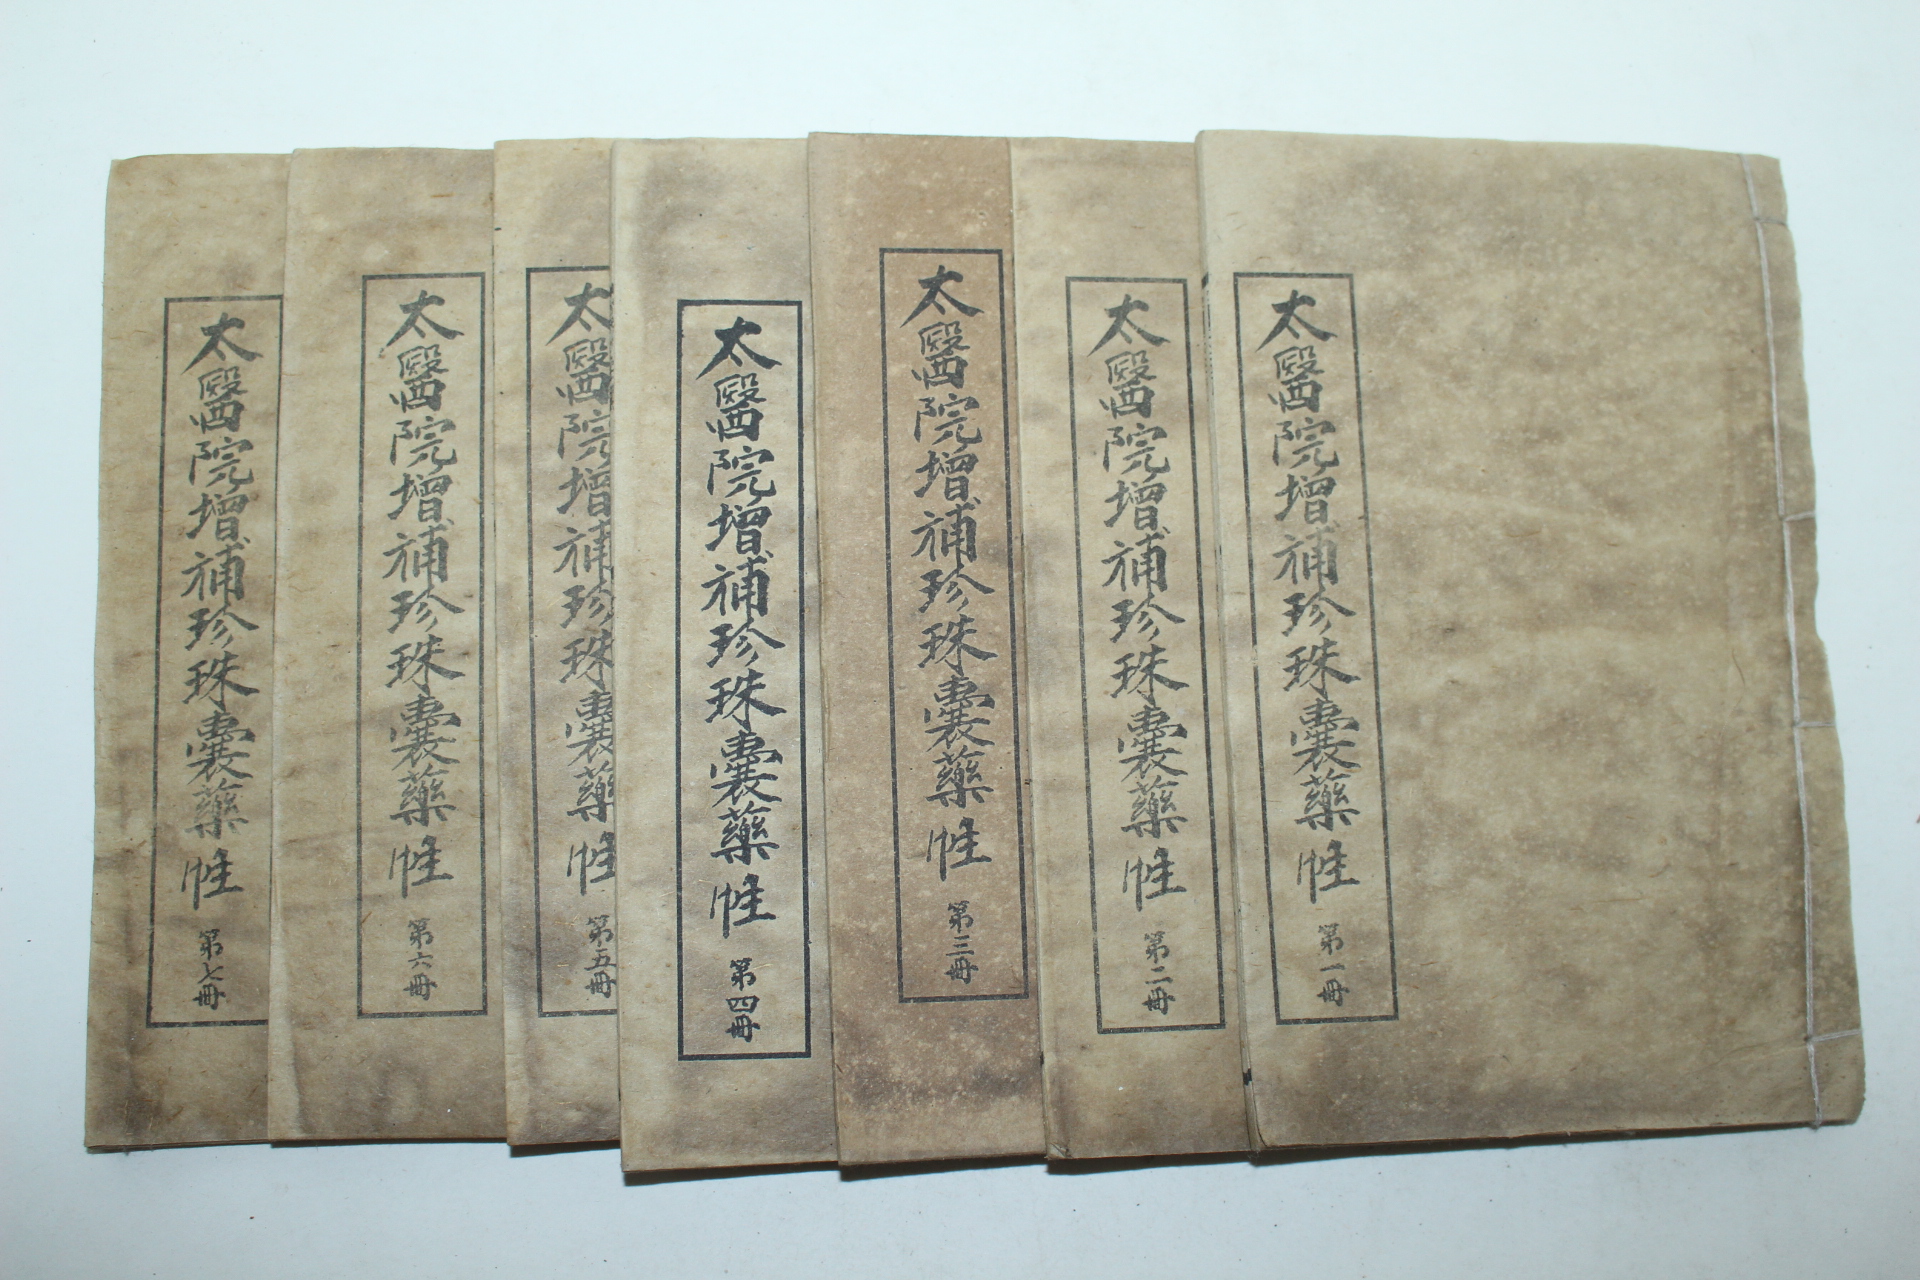 太醫院增補珍珠囊藥性 第一冊
太醫院增補珍珠囊藥性 第二冊
太醫院增補珍珠囊藥性 第三冊
太醫院增補珍珠囊藥性 第四冊
太醫院增補珍珠囊藥性 第五冊
太醫院增補珍珠囊藥性 第六冊
太醫院增補珍珠囊藥性 第七冊